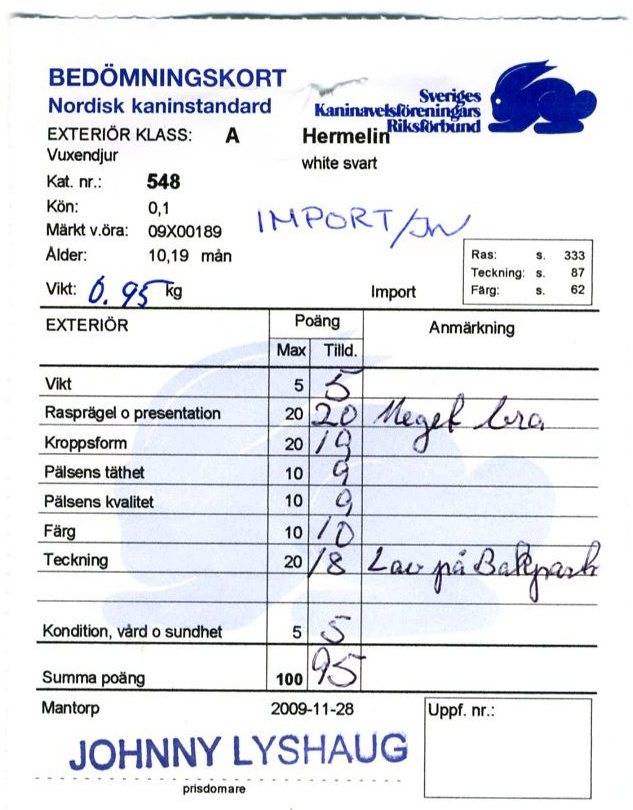 BEDÖMNINGSKORT
Nordisk kaninstandard
Sveriges
Kaninavelsföreningars
Riksförbund
EXTERIÖR KLASS: A Hermelin
Vuxendjur white svart
Kat. nr.: 548
Kön: 0,1
Märkt v.öra: 09X00189
IMPORT/JW
Ålder: 10,19 mån
Vikt: 0.95 kg Import
Ras: s. 333
Teckning: s. 87
Färg: s. 62
EXTERIÖR Poäng Anmärkning
Max Tilld.
Vikt 5 5
Rasprägel o presentation 20 20 Meget bra
Kroppsform 20 19
Pälsens täthet 10 9
Pälsens kvalitet 10 9
Färg 10 10
Teckning 20 18 Lav på Bakpart
Kondition, vård o sundhet 5 5
Summa poäng 100 95
Mantorp 2009-11-28 Uppf. nr.:
JOHNNY LYSHAUG
prisdomare